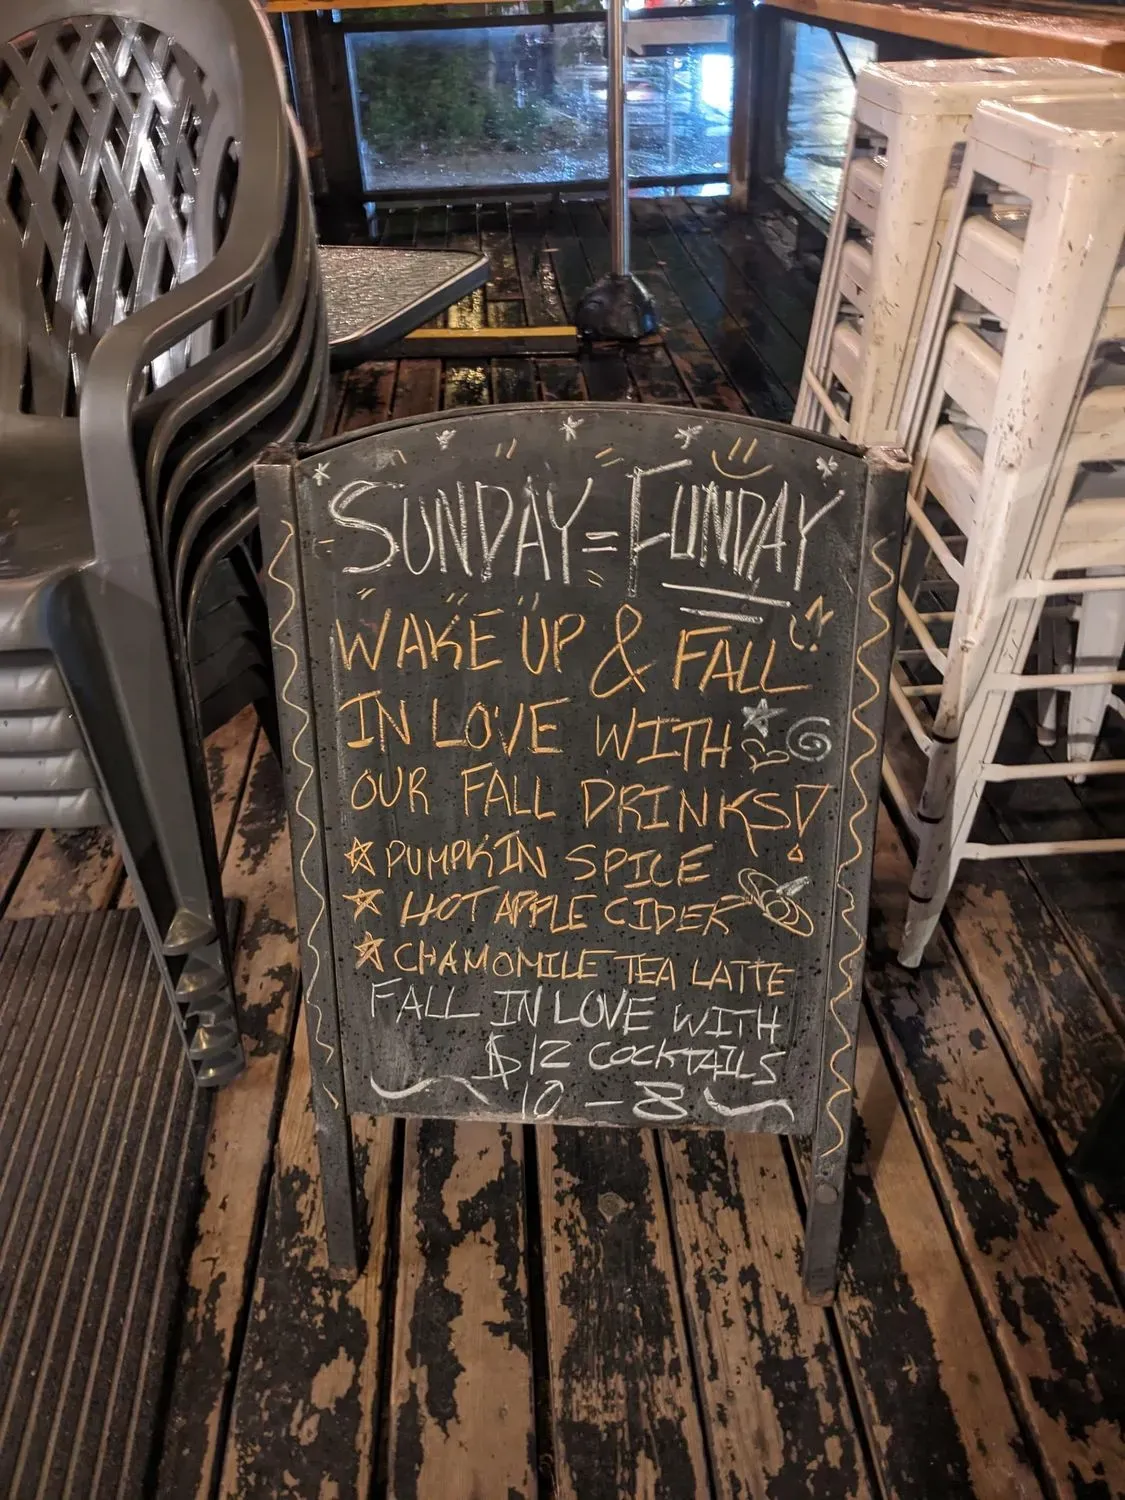 SUNDAY = FUNDAY
WAKE UP & FALL
IN LOVE WITH
OUR FALL DRINKS!
PUMPKIN SPICE
HOT APPLE CIDER
CHAMOMILE TEA LATTE
FALL IN LOVE WITH
$12 COCKTAILS
10 - 8